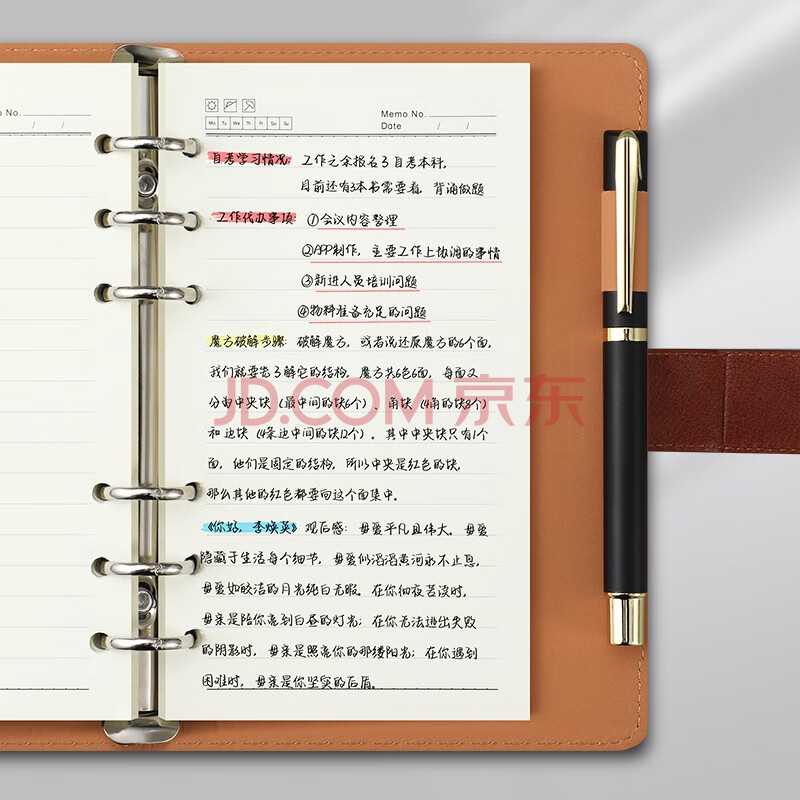 o No.
/ /
Memo No.
Mo Tu We Th Fr Sa Su
Date / /
自考学习情况: 工作之余报名了自考本科,
目前还有3本书需要看, 背诵做题
工作代办事项: ①会议内容整理
②APP制作, 主要工作上协调的事情
③新进人员培训问题
④物料准备充足的问题
魔方破解步骤: 破解魔方, 或者说还原魔方的6个面,
我们就要先了解它的结构, 魔方共6色6面, 每面又
分由中央块 (最中间的块6个)、角块 (4角的块8个)
和边块 (4条边中间的块12个)。其中中央块只有1个
面, 他们是固定的结构, 所以中央是红色的块,
那么其他的红色都要向这个面集中。
《你好, 李焕英》观后感: 母爱平凡且伟大。母爱
隐藏于生活每个细节, 母爱似滔滔黄河永不止息,
母爱如皎洁的月光纯白无暇。在你彻夜苦读时,
母亲是陪你亮到白昼的灯光; 在你无法逃出失败
的阴影时, 母亲是照亮你的那缕阳光; 在你遇到
困难时, 母亲是你坚实的后盾。
JD.COM 京东